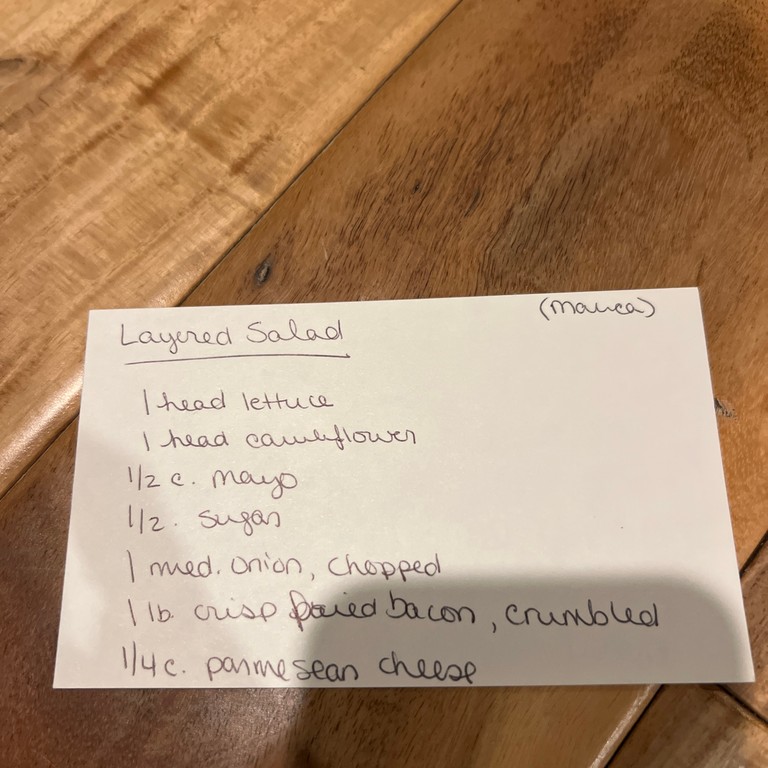 Layered Salad
1 head lettuce
1 head cauliflower
1/2 c. mayo
1/2. sugar
1 med. onion, chopped
1 lb. crisp fried bacon, crumbled
1/4 c. parmesean cheese